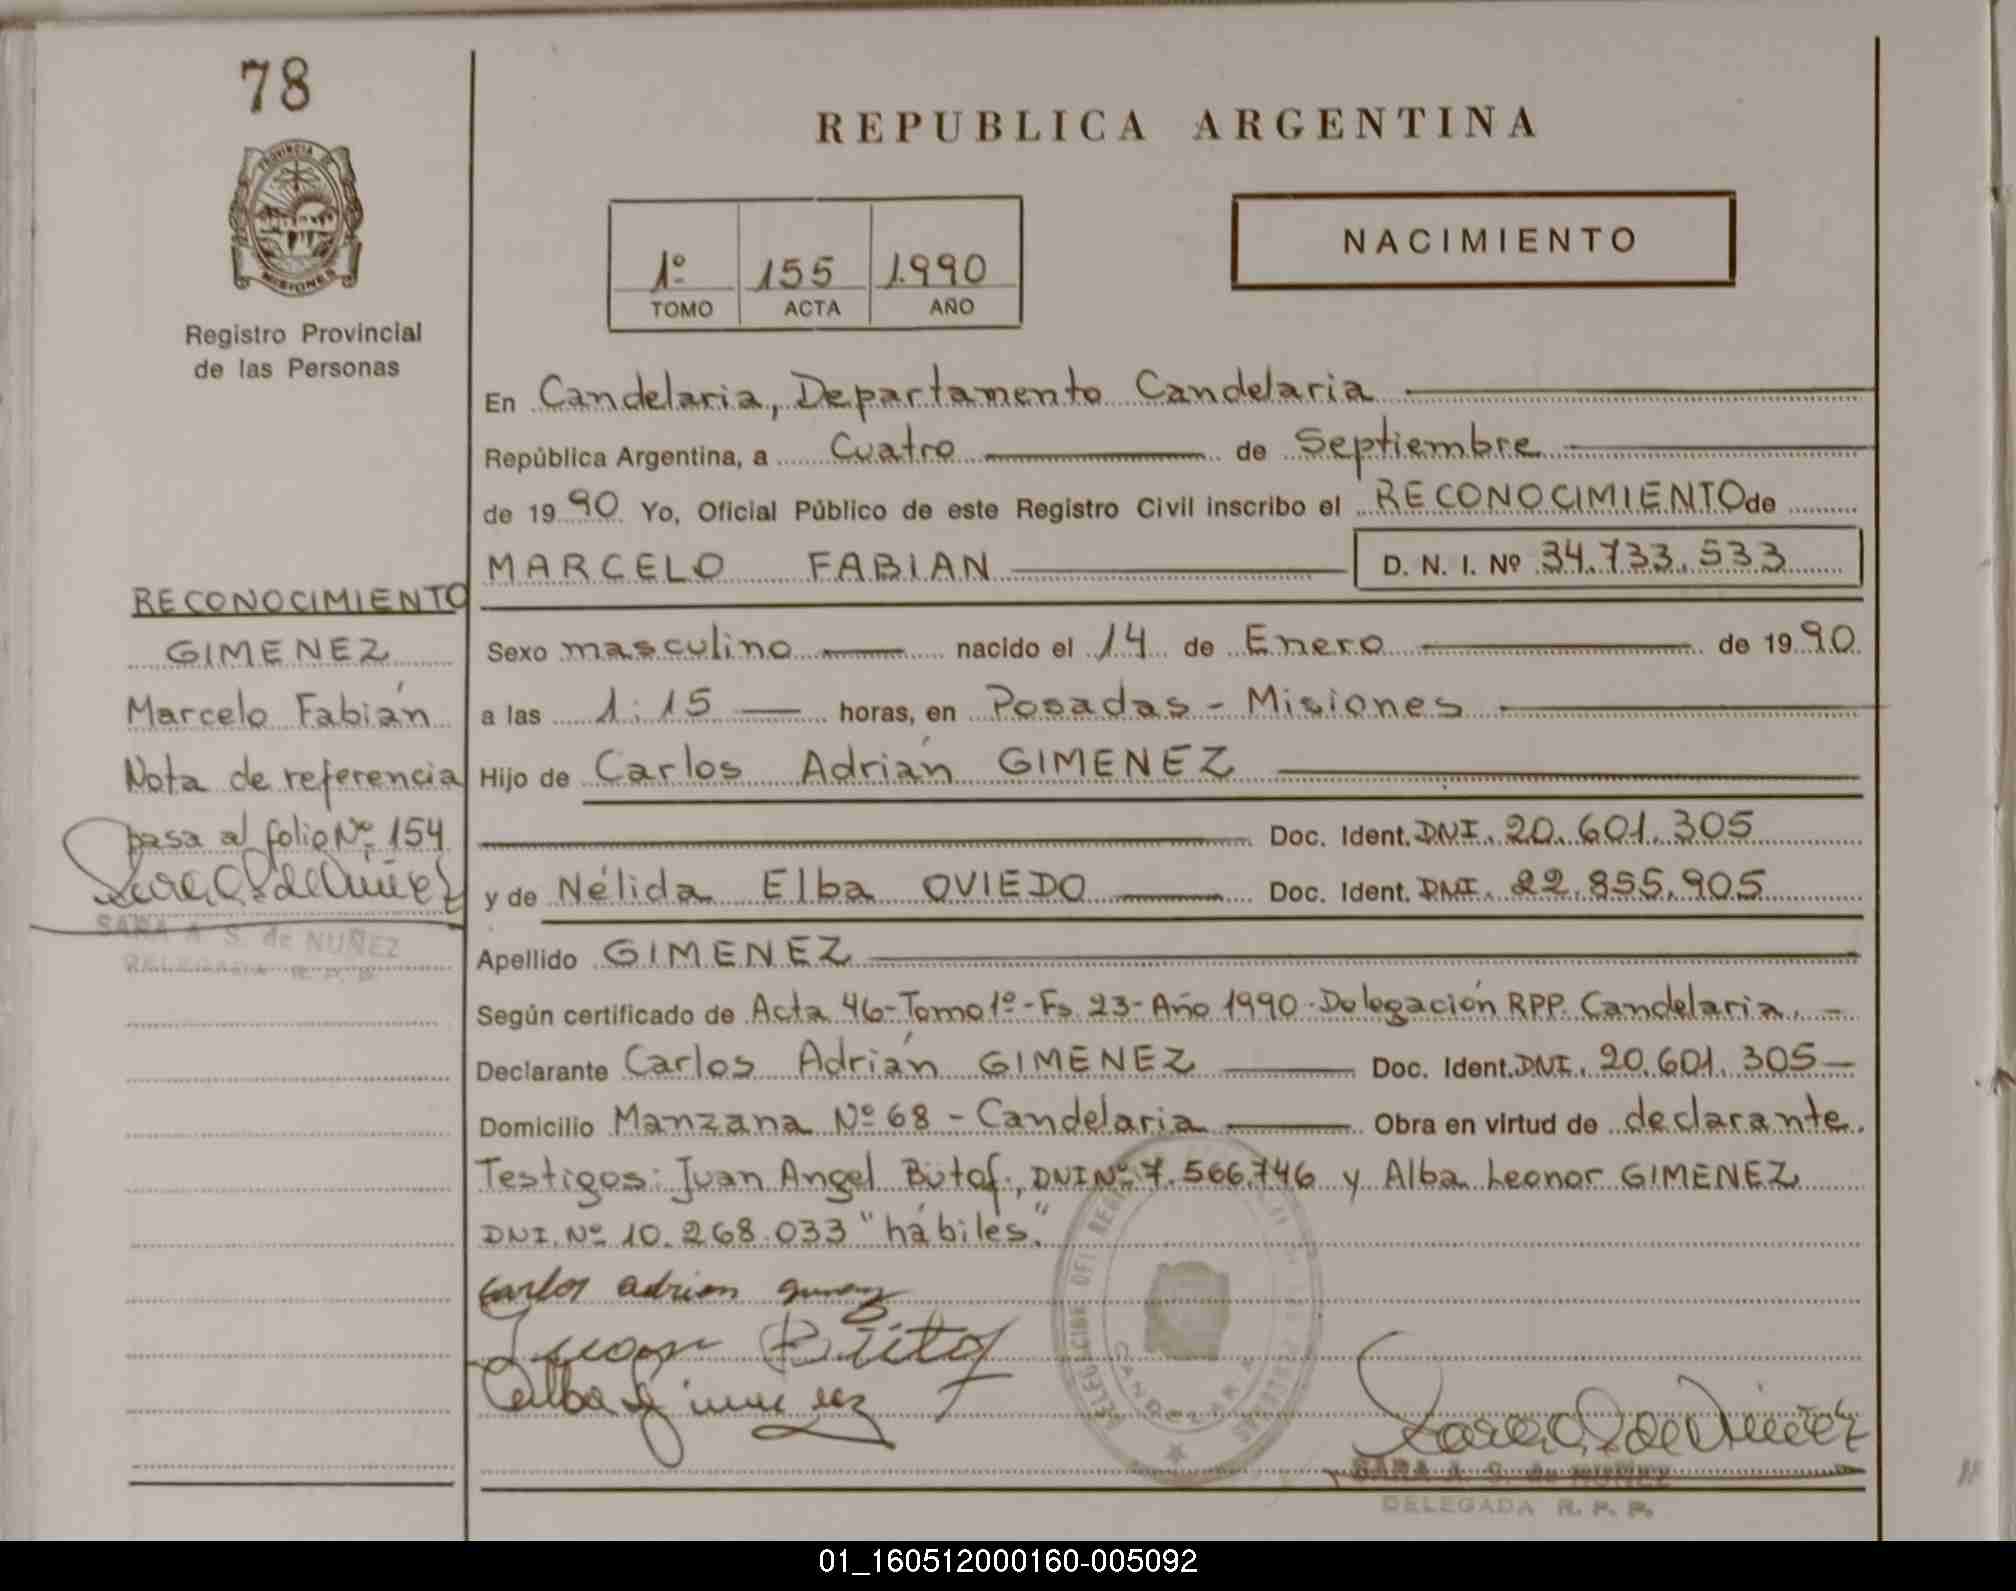 78
PROVINCIA DE
MISIONES
Registro Provincial
de las Personas
REPUBLICA ARGENTINA
1º 155 1.990
TOMO ACTA AÑO
NACIMIENTO
En Candelaria, Departamento Candelaria
República Argentina, a Cuatro de Septiembre
de 1990 Yo, Oficial Público de este Registro Civil inscribo el RECONOCIMIENTO de
MARCELO FABIAN D. N. I. Nº 34.733.533
Sexo masculino nacido el 14 de Enero de 1990
a las 1:15 horas, en Posadas - Misiones
Hijo de Carlos Adrián GIMENEZ
Doc. Ident. DNI. 20.601.305
y de Nélida Elba OVIEDO Doc. Ident. DNI. 22.855.905
Apellido GIMENEZ
Según certificado de Acta 46-Tomo 1º-Fs. 23-Año 1990-Delegación RPP. Candelaria. -
Declarante Carlos Adrián GIMENEZ Doc. Ident. DNI. 20.601.305-
Domicilio Manzana Nº 68 - Candelaria Obra en virtud de declarante.
Testigos: Juan Angel Bütof., DNI Nº 7.566.746 y Alba Leonor GIMENEZ
DNI. Nº 10.268.033 "hábiles."
RECONOCIMIENTO
GIMENEZ
Marcelo Fabián
Nota de referencia
pasa al folio Nº 154
SARA A. S. de NUÑEZ
DELEGADA R. P. P.
Carlos adrian
Juan Bütof
Alba Gimenez
CANDELARIA
SARA A. S. de NUÑEZ
DELEGADA R. P. P.
01_160512000160-005092